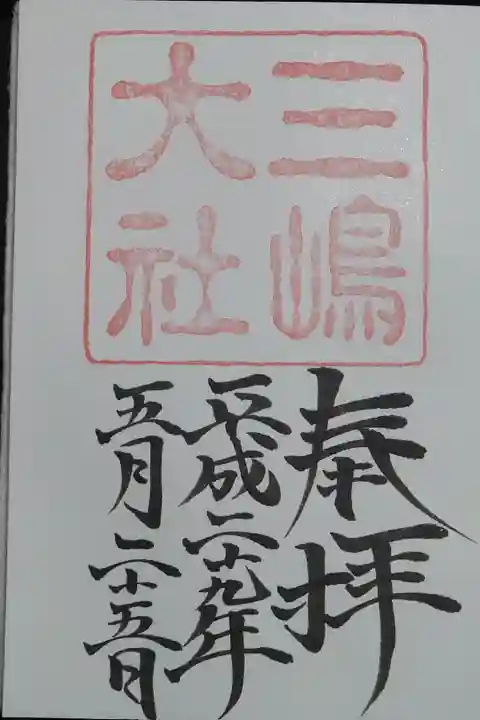 三嶋
大社
奉拝
平成二十九年
五月二十五日